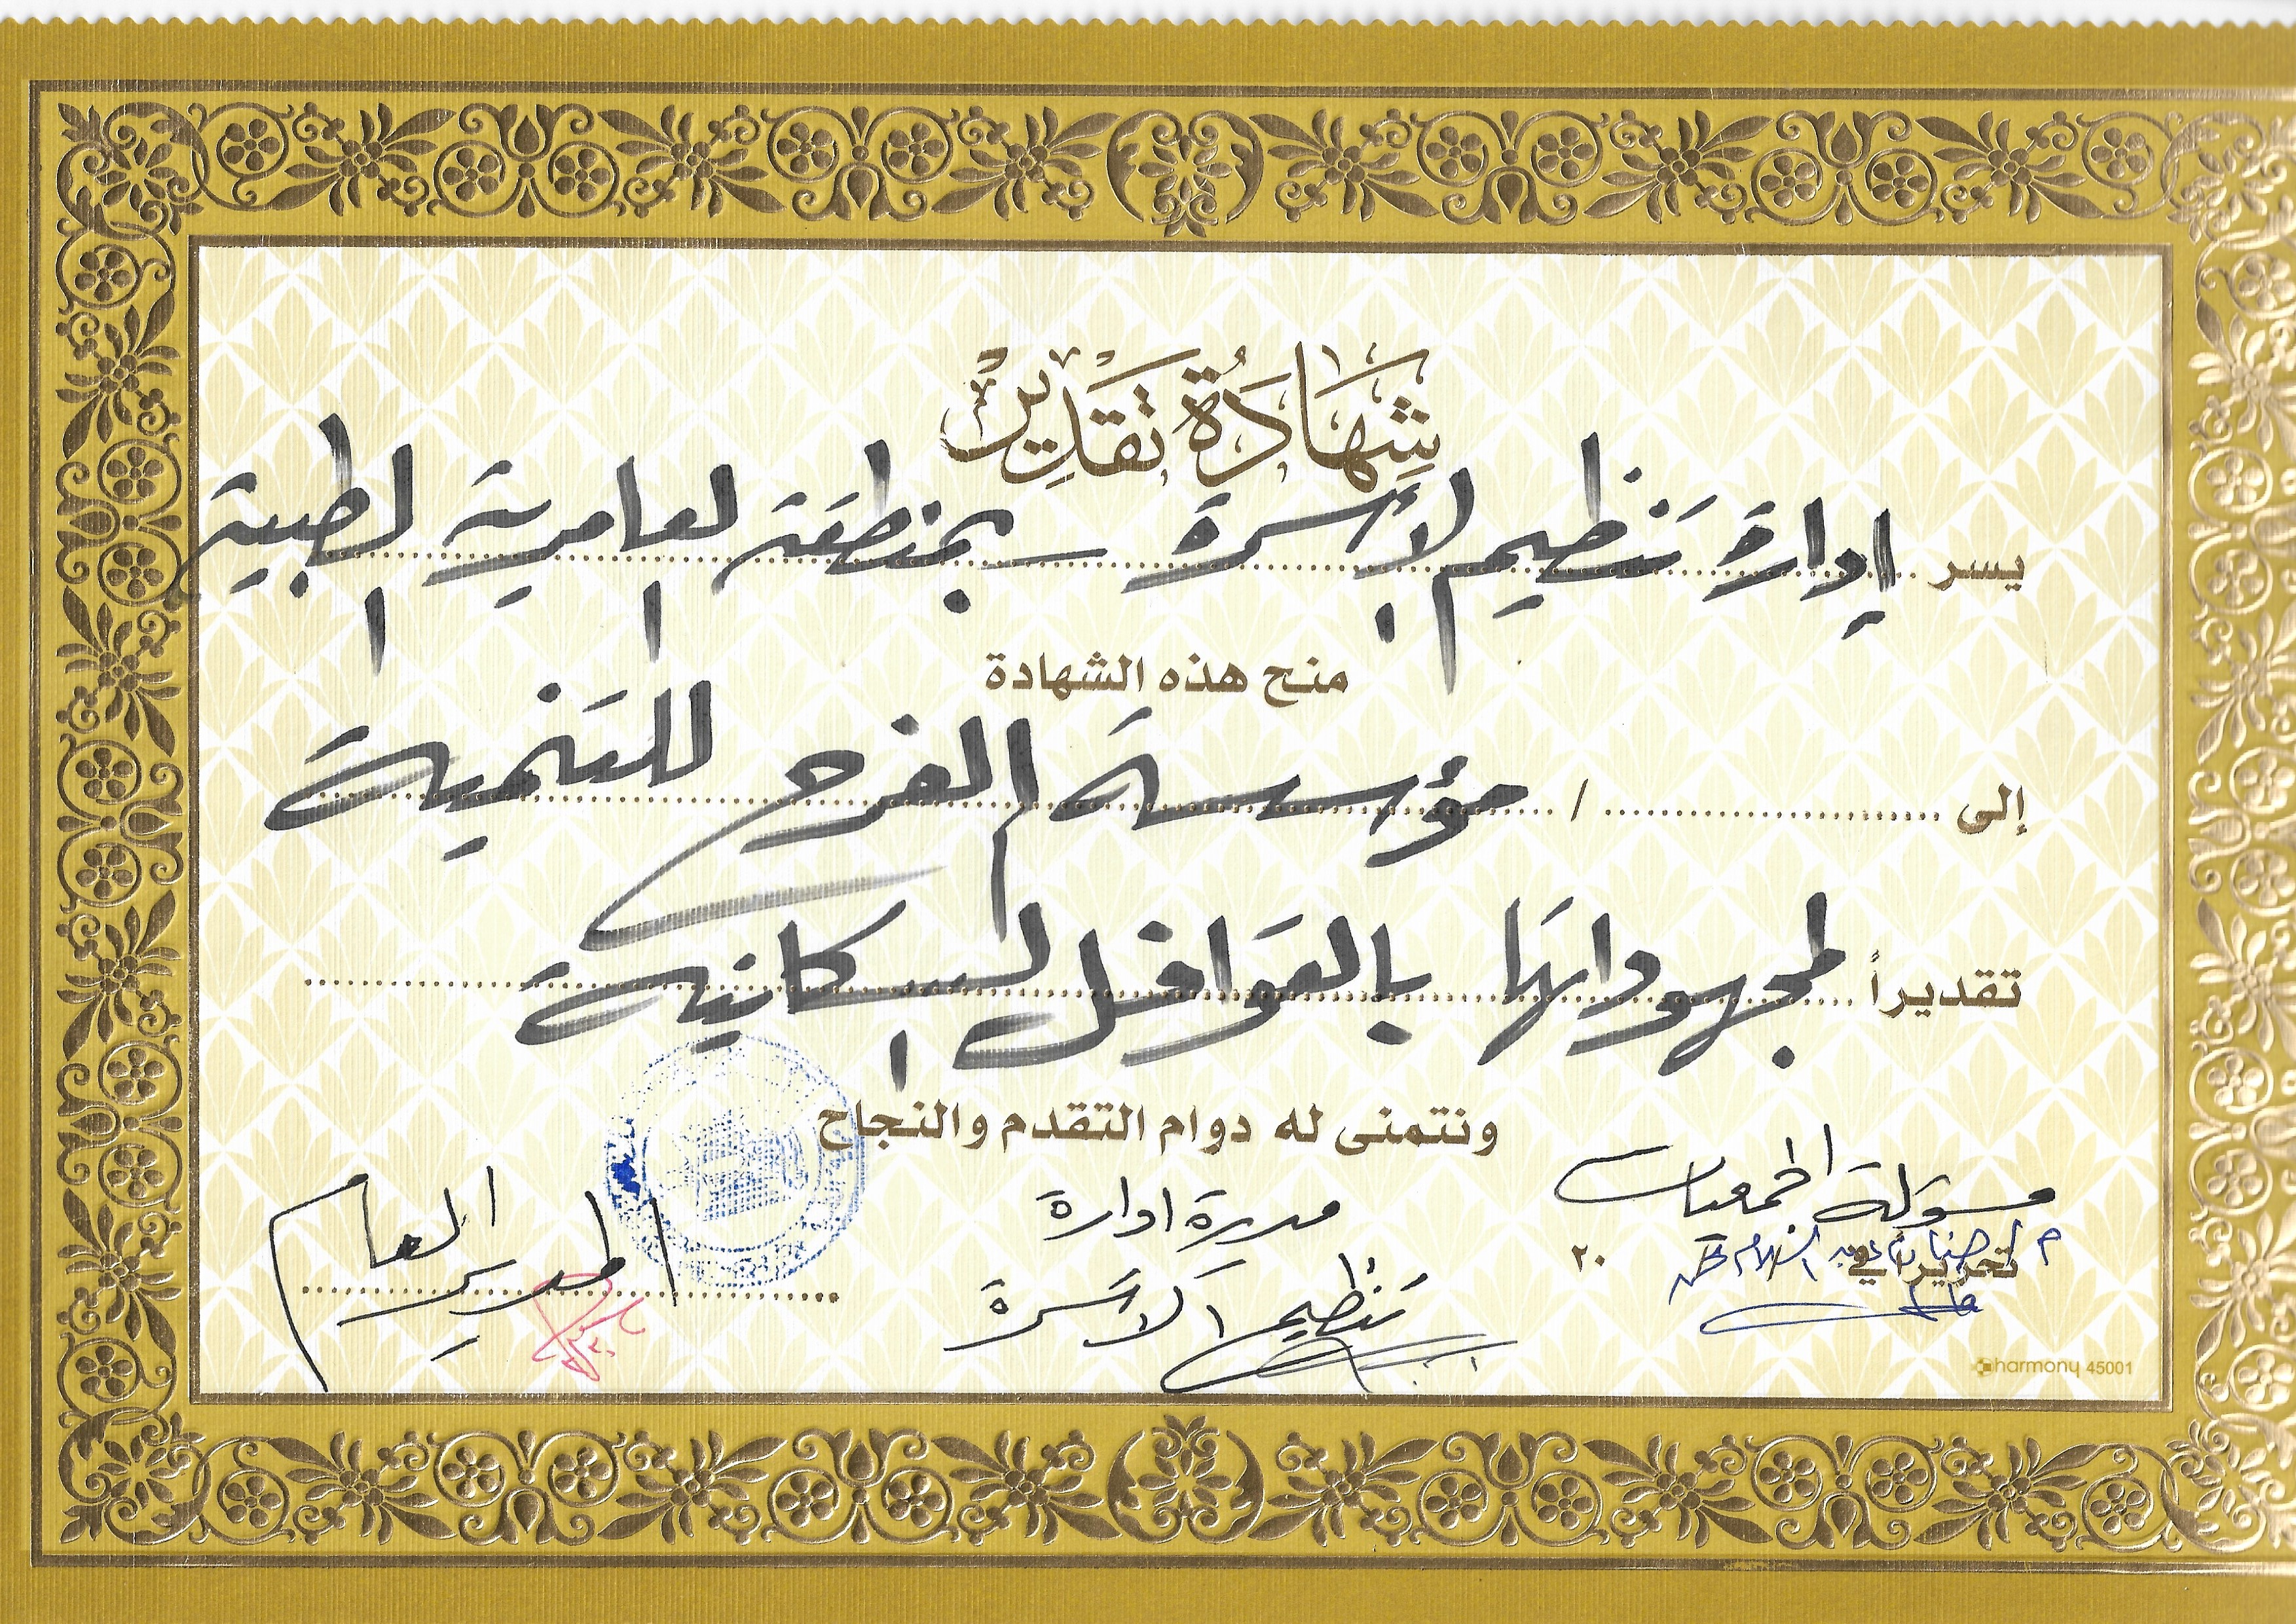 شهادة تقدير
يسر إدارة تنظيم الأسرة بمنطقة العامرية الطبية
منح هذه الشهادة
إلى / مؤسسة الفرح للتنمية
تقديراً لمجهوداتها بالقوافل السكانية
ونتمنى له دوام التقدم والنجاح
مسئولة الجمعيات
مديرة ادارة
المدير العام
تحريراً في
٢٠
تنظيم الأسرة
harmony 45001